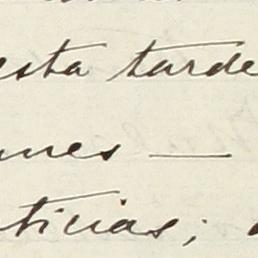 esta tarde
unes —
ticias;